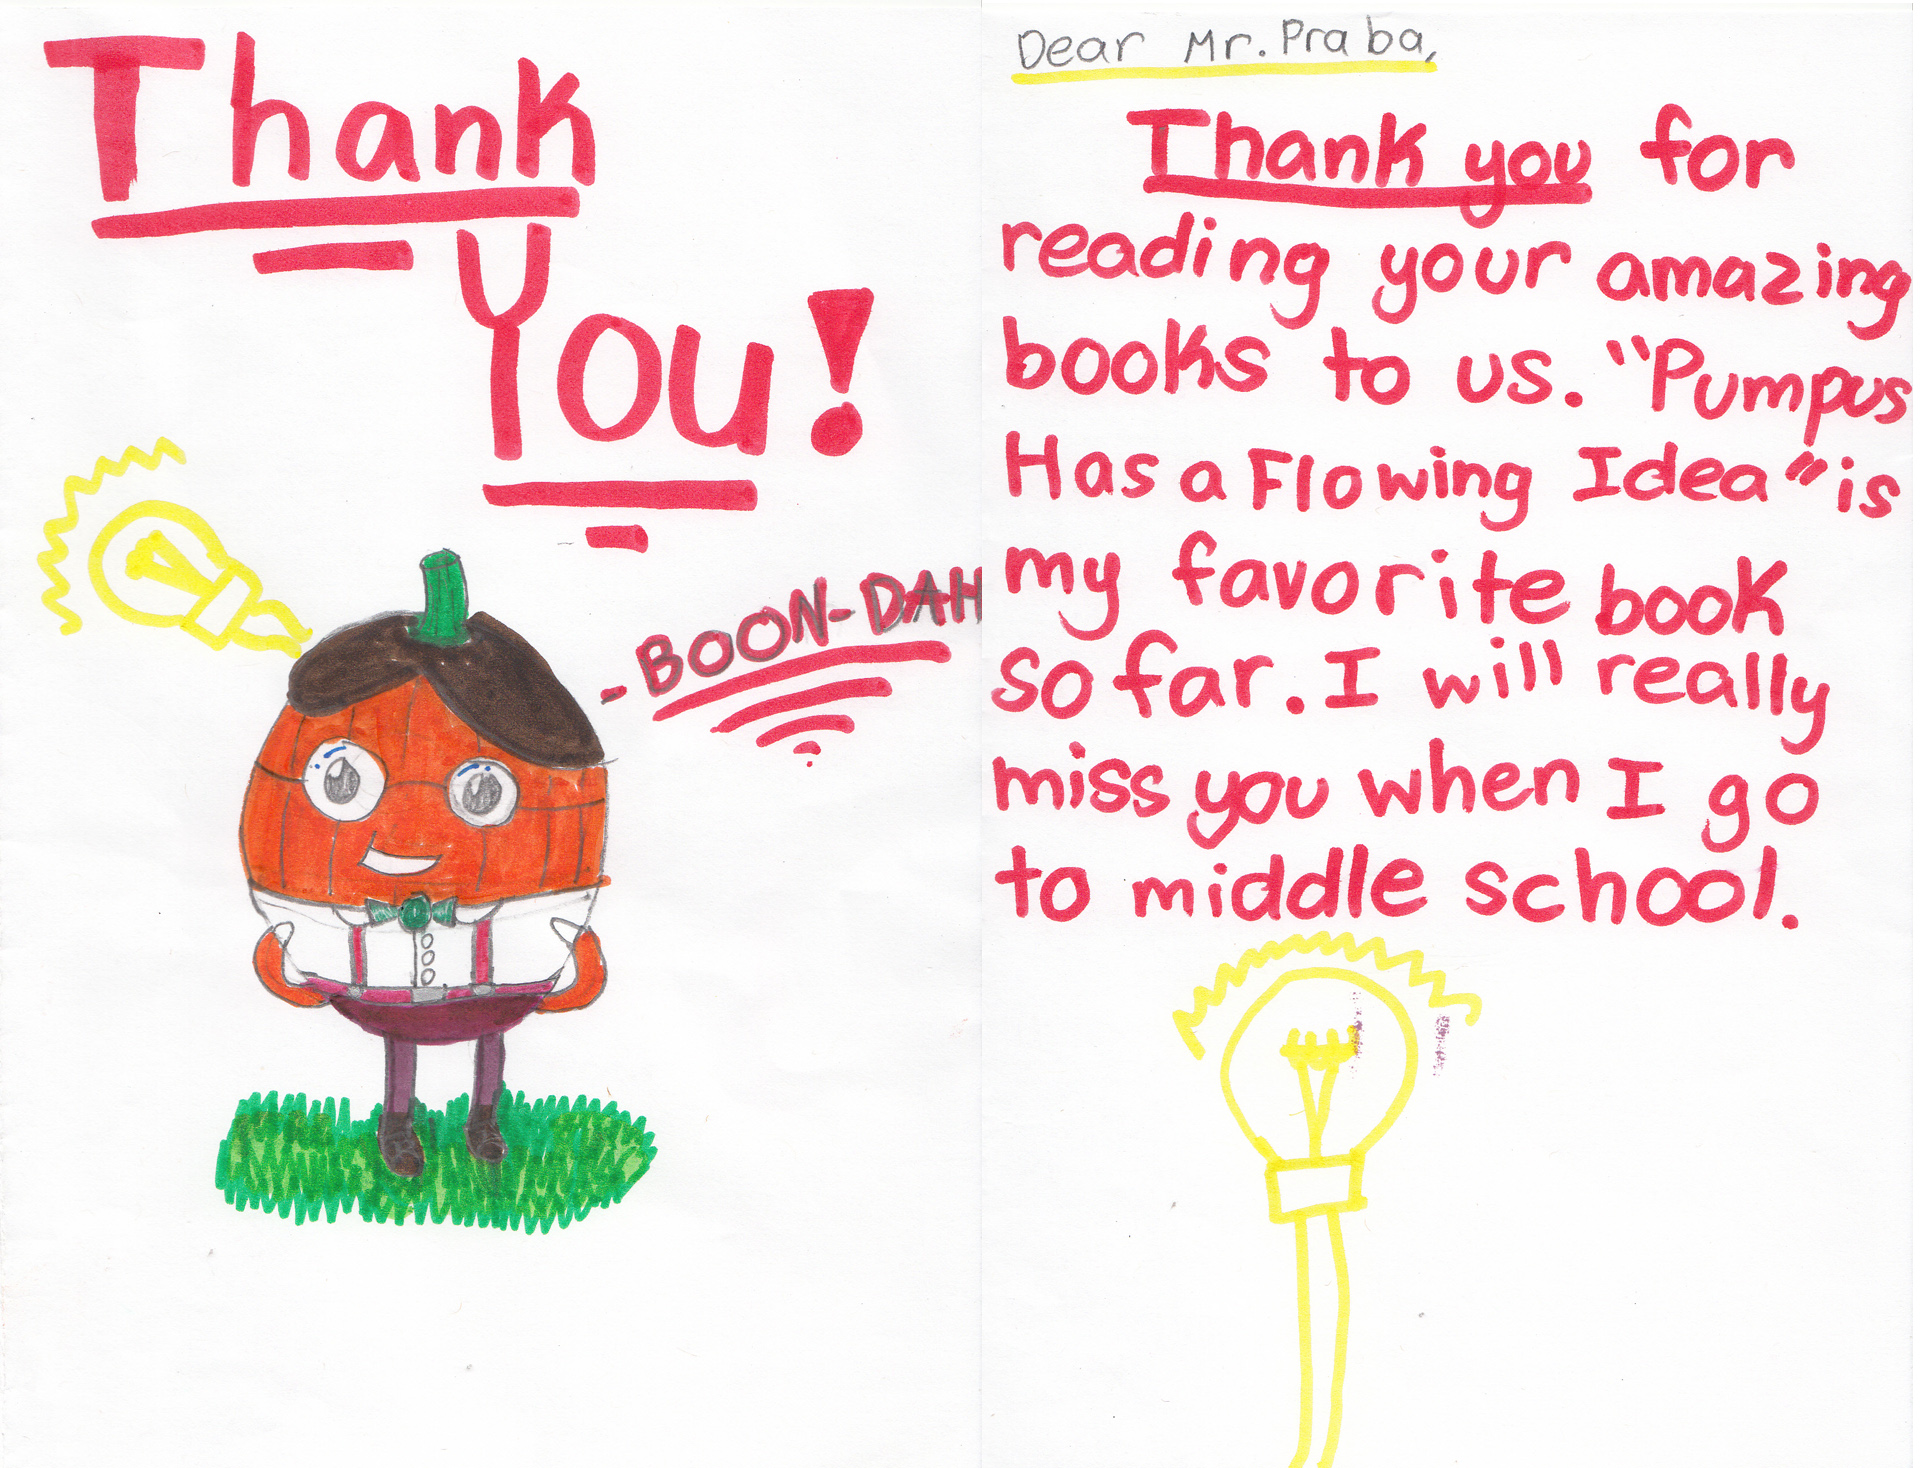 Thank
You!
-BOON-DAH
Dear Mr. Praba,
Thank you for
reading your amazing
books to us. "Pumpus
Has a Flowing Idea" is
my favorite book
so far. I will really
miss you when I go
to middle school.